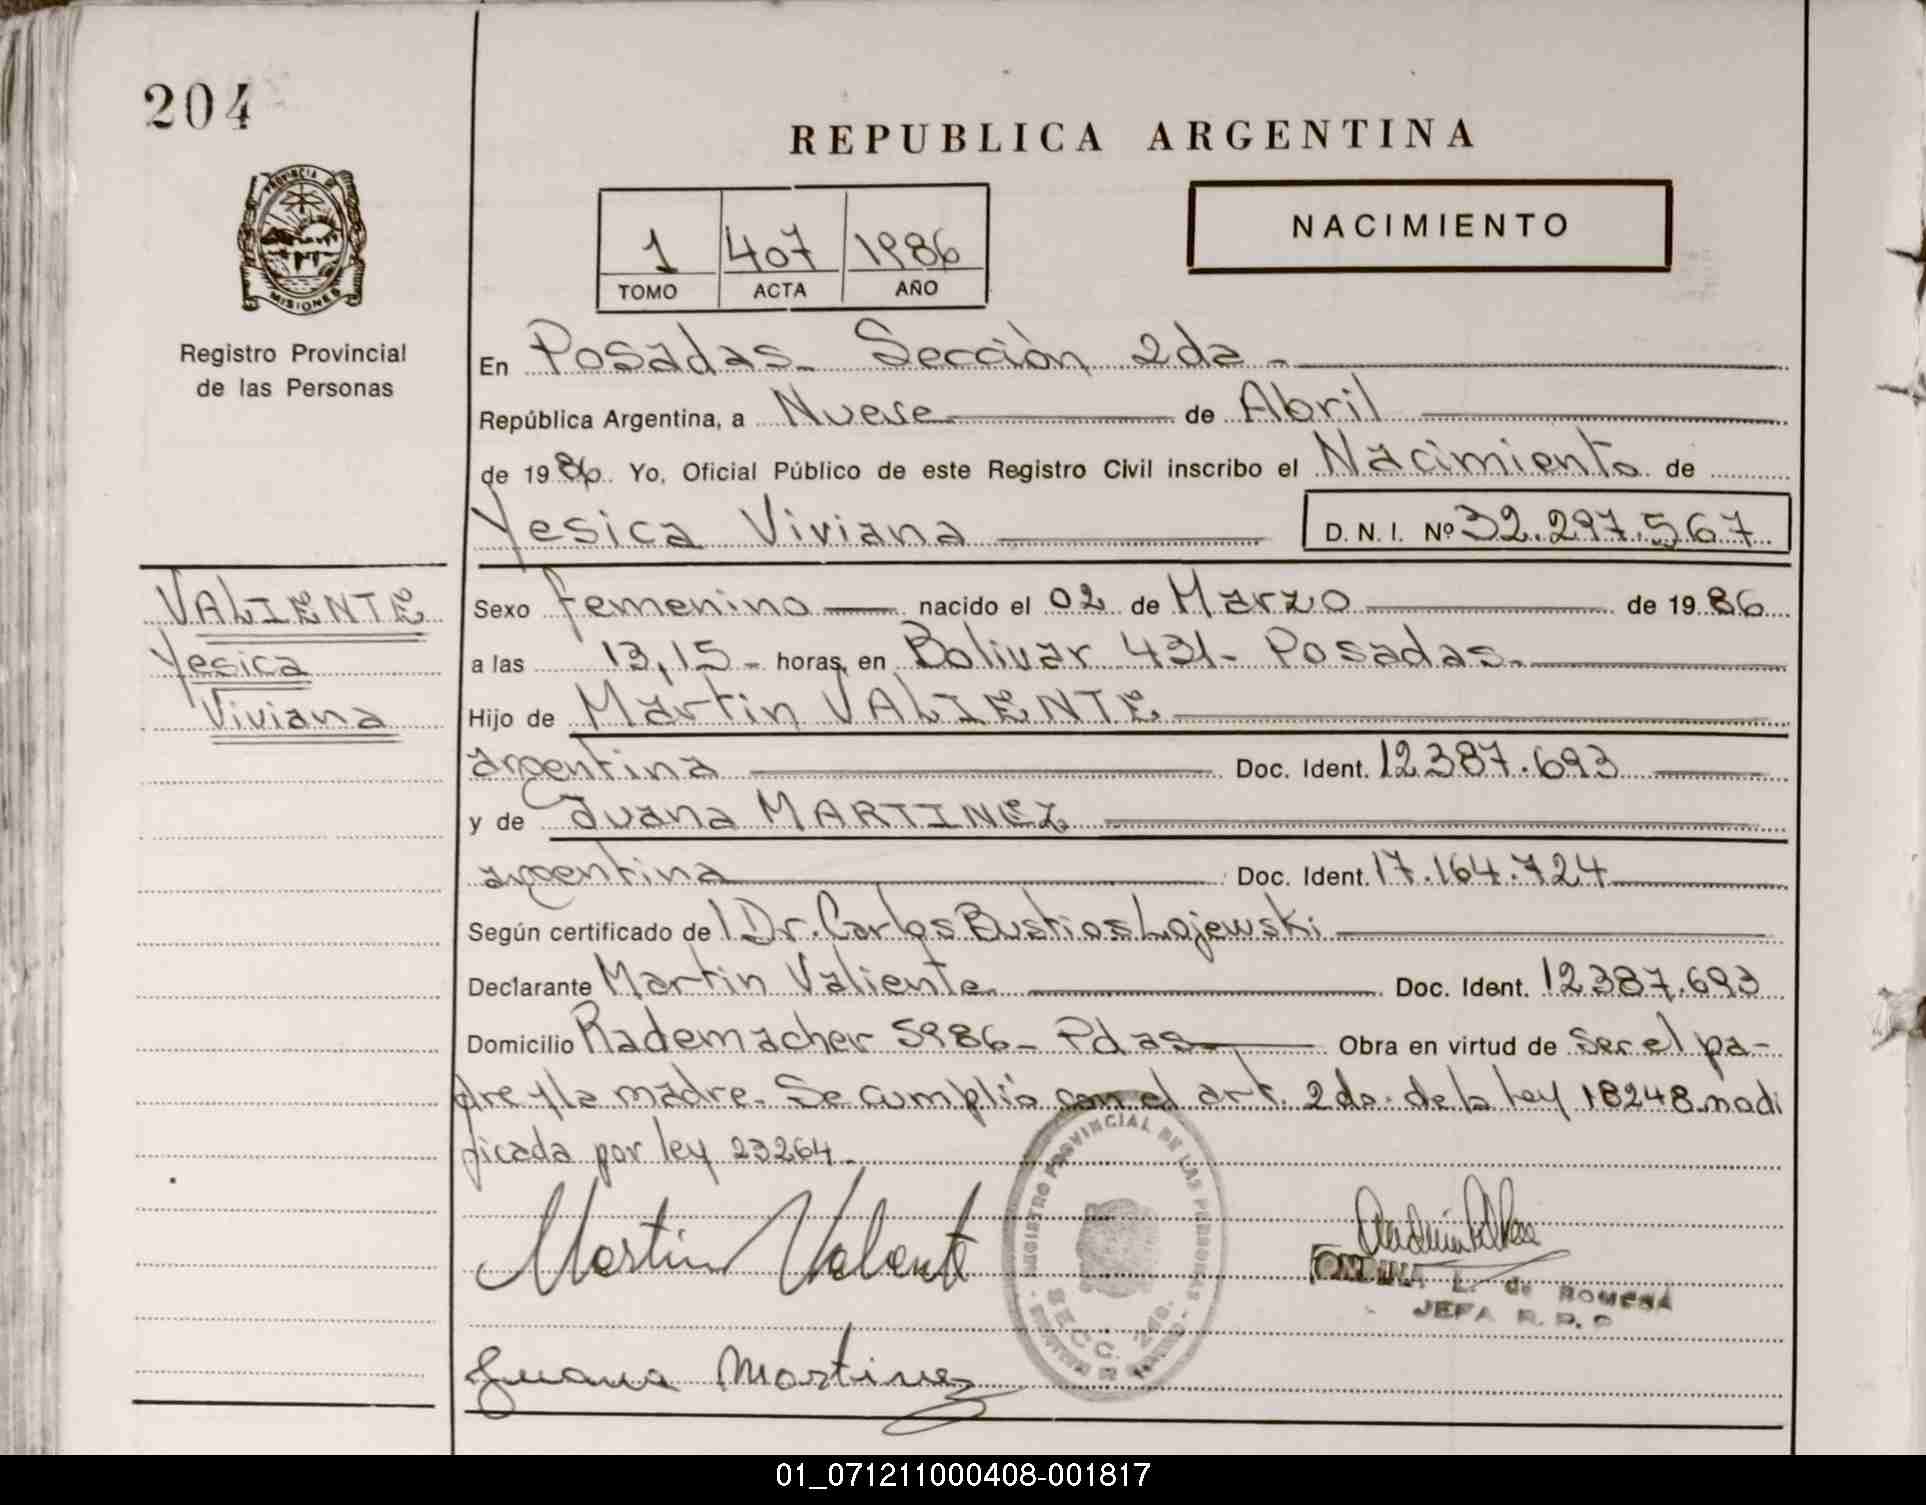 204
REPUBLICA ARGENTINA
PROVINCIA DE
MISIONES
1 407 1986
TOMO ACTA AÑO
NACIMIENTO
Registro Provincial
de las Personas
En Posadas - Sección 2da -
República Argentina, a Nueve de Abril
de 1986. Yo, Oficial Público de este Registro Civil inscribo el Nacimiento de
Yesica Viviana D. N. I. Nº 32.297.567
VALIENTE
Yesica
Viviana
Sexo femenino nacido el 02 de Marzo de 1986
a las 13,15 - horas, en Bolivar 431 - Posadas -
Hijo de Martin VALIENTE
argentina Doc. Ident. 12387.693
y de Juana MARTINEZ
argentina Doc. Ident. 17.164.724
Según certificado de Dr. Carlos Bustios Lojewski
Declarante Martin Valiente Doc. Ident. 12387.693
Domicilio Rademacher 5986 - Pdas Obra en virtud de ser el pa-
dre y la madre. Se cumplió con el art. 2do. de la ley 18248 modi
ficada por ley 23264 -
REGISTRO PROVINCIAL DE LAS PERSONAS
SECC. 2da.
Martin Valiente
L. de ROMERA
JEFA R. P. P
Juana Martinez
01_071211000408-001817